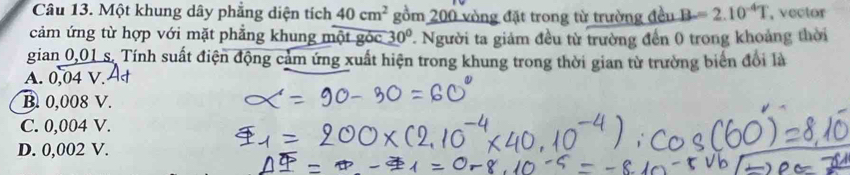 Câu 13. Một khung dây phẳng diện tích 40 cm² gồm 200 vòng đặt trong từ trường đều B = 2.10⁻⁴T, vector
cảm ứng từ hợp với mặt phẳng khung một góc 30⁰. Người ta giảm đều từ trường đến 0 trong khoảng thời
gian 0,01 s. Tính suất điện động cảm ứng xuất hiện trong khung trong thời gian từ trường biến đổi là
A. 0,04 V.
B. 0,008 V.
α = 90 - 30 = 60⁰
C. 0,004 V.
Φ1 = 200 × (2.10⁻⁴ × 40.10⁻⁴) . cos(60) = 8.10
D. 0,002 V.
ΔΦ = Φ - Φ1 = 0 - 8.10⁻⁵ = -8.10⁻⁵ Vb